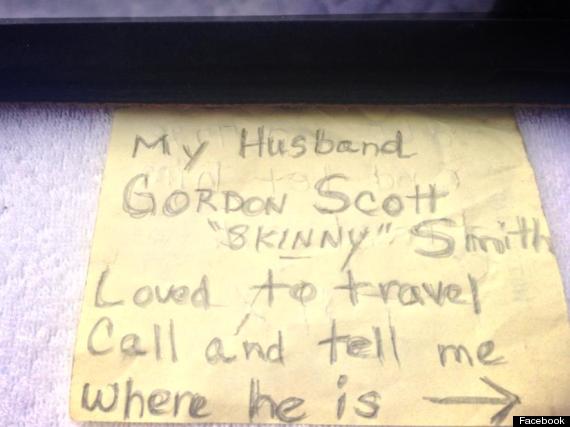 My Husband
GORDON Scott
"SKINNY" Smith
Loved to travel
Call and tell me
where he is →
Facebook